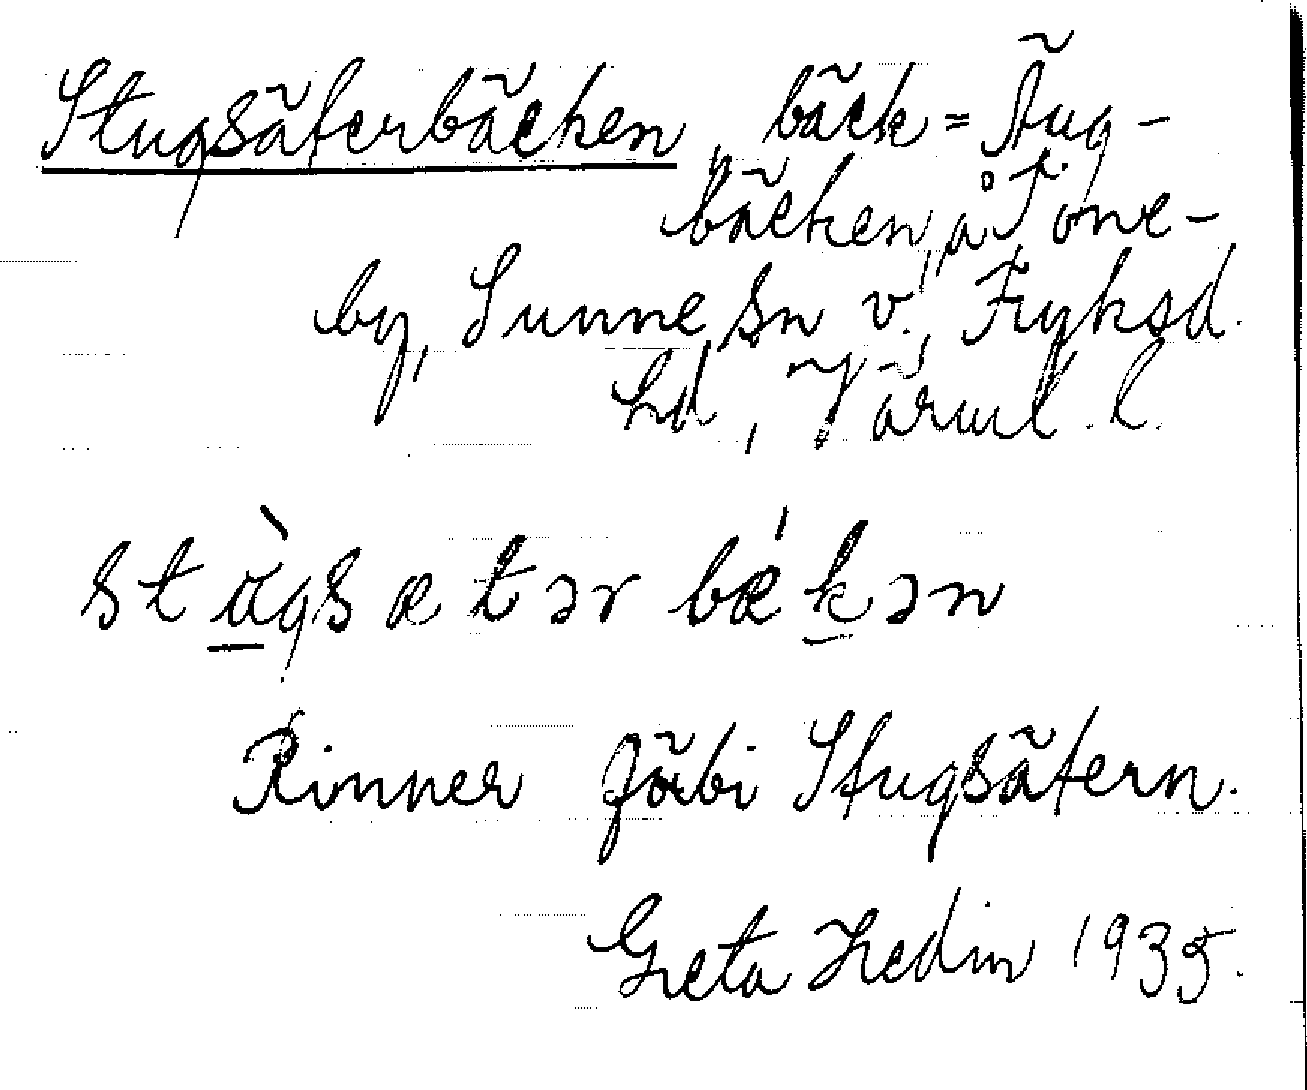 Stugsäterbäcken, bäck = Äug-
bäcken, å Tone-
by, Sunne sn v., Fryksd.
hd, Värml. l.
stùgsætər bǽkən
Rinner förbi Stugsätern.
Greta Hedin 1935.